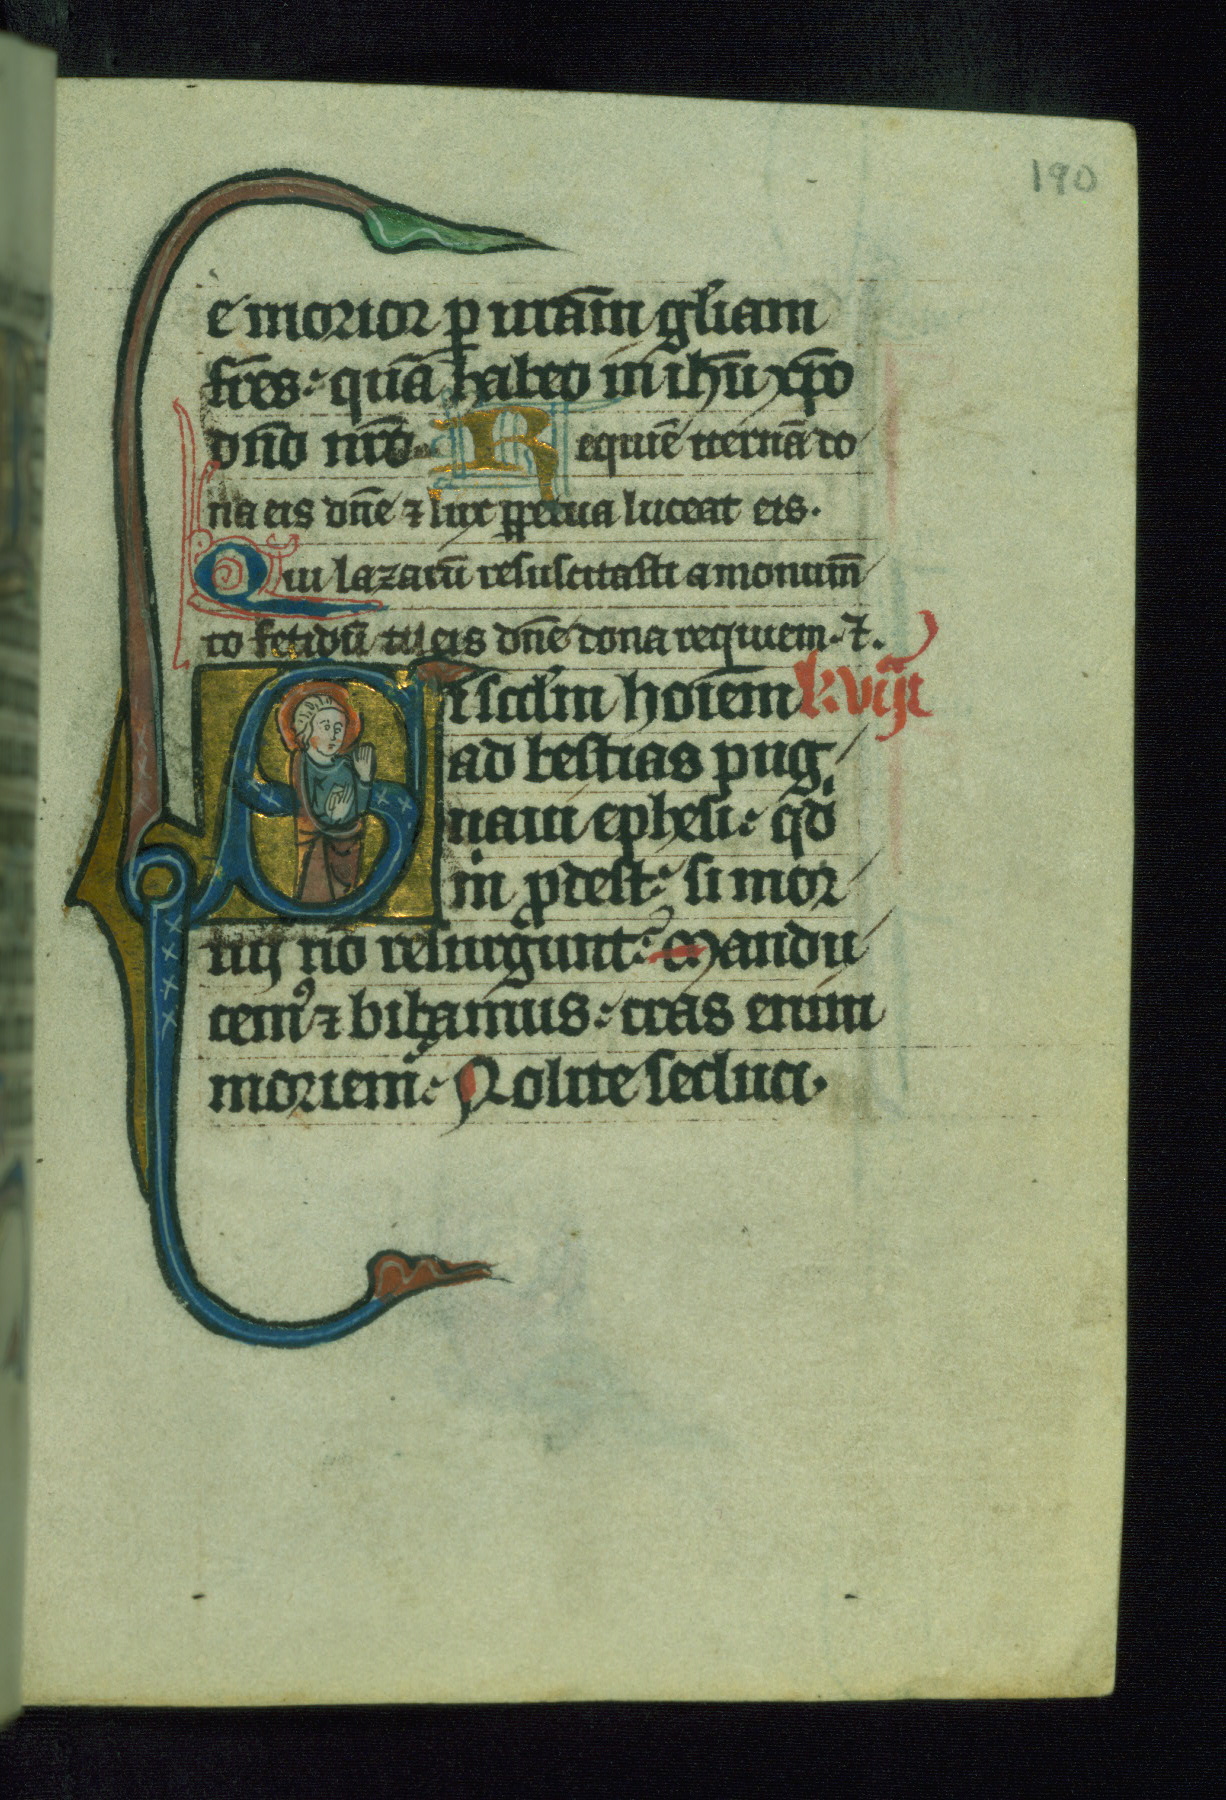 190
e morior p uram gliam
fres quā habeo in ihū xpo
dño nrō Requiē eternā do
na eis dñe ⁊ lux ppetua luceat eis.
Qui lazarū resuscitasti a monum̄
to fetidū tu eis dñe dona requiem. ⁊.
Si scdm hoiem
ad bestias pug
naui ephesi qd
m̄ pdest si mor
tui nō resurgunt Mandu
cem⁹ ⁊ bibamus cras enim
moriem̄ Nolite seduci.